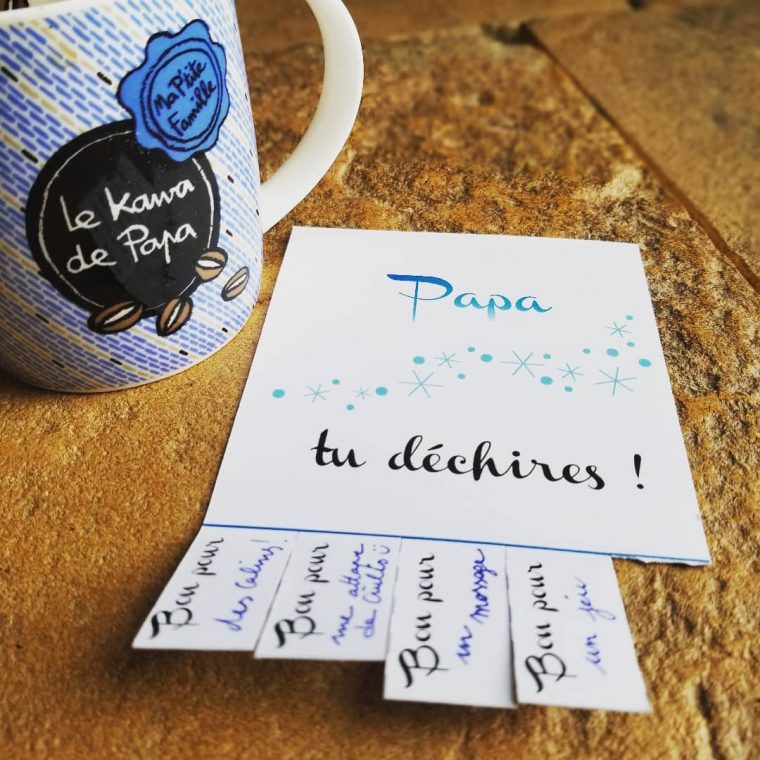 Ma P'tite
Famille
Le Kawa
de Papa
Papa
tu déchires !
Bon pour
des calins!
Bon pour
une attaque
de Guilis
Bon pour
un massage
Bon pour
un jeu